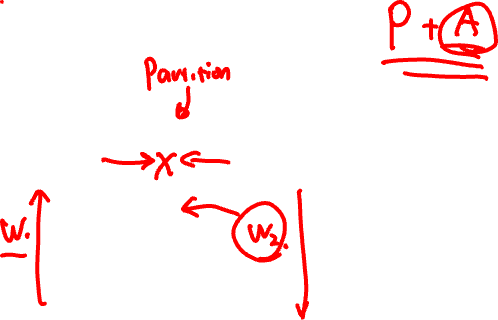 P + A
Parition
X
W1
W2.